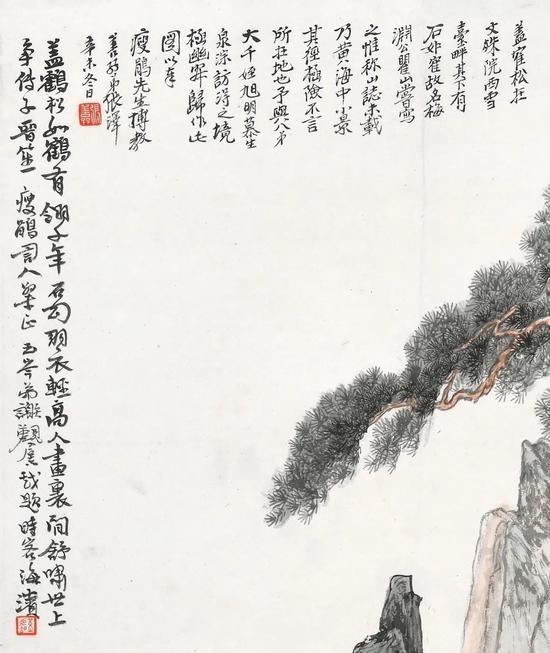 蓋寉松在
文殊院西雪
臺畔其下有
石如寉故名梅
淵公瞿山嘗寫
之惟称山誌未載
乃黄海中小景
其徑極險不言
所在地也予與八弟
大千姪旭明慕生
泉深訪得之境
極幽歸作此
圖以奉
瘦鵑先生教
善孖弟張澤
辛未冬日
蓋鶴松如鶴有翎千年石羽衣輕高人畫裏閒舒嘯世上
爭傳子晉笙 瘦鵑詞人粲正 玉岑弟謝覲虞題時客海濱